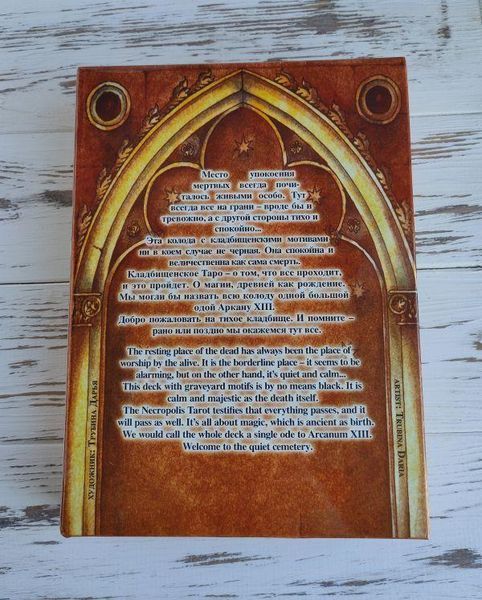 Место упокоения
мертвых всегда почи-
талось живыми особо. Тут
всегда все на грани – вроде бы и
тревожно, а с другой стороны тихо и
спокойно...
Эта колода с кладбищенскими мотивами
ни в коем случае не черная. Она спокойна и
величественна как сама смерть.
Кладбищенское Таро – о том, что все проходит,
и это пройдет. О магии, древней как рождение.
Мы могли бы назвать всю колоду одной большой
одой Аркану XIII.
Добро пожаловать на тихое кладбище. И помните –
рано или поздно мы окажемся тут все.
The resting place of the dead has always been the place of
worship by the alive. It is the borderline place – it seems to be
alarming, but on the other hand, it's quiet and calm...
This deck with graveyard motifs is by no means black. It is
calm and majestic as the death itself.
The Necropolis Tarot testifies that everything passes, and it
will pass as well. It's all about magic, which is ancient as birth.
We would call the whole deck a single ode to Arcanum XIII.
Welcome to the quiet cemetery.
художник: Трубина Дарья
artist: Trubina Daria